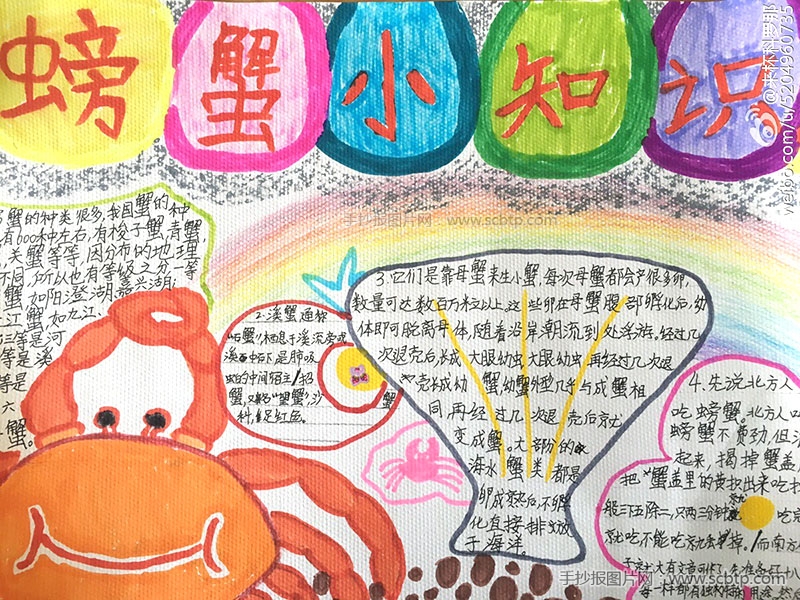 螃蟹小知识
蟹的种类很多,我国蟹的种
有600种左右,有梭子蟹,青蟹,
关蟹等等,因分布的地理
不同,所以也有等级之分一等
蟹如阳澄湖,嘉兴湖;
江蟹如九江、
三等是河
等是溪
等是
六
蟹。
2.溪蟹通称
石蟹,栖息于溪流旁或
溪
的中间宿主/招
蟹
科,足红色。
3.它们是靠母蟹来生小蟹,每次母蟹都会产很多卵,
数量可达数百万米立以上,这些卵在母蟹腹部孵化后,幼
体即可脱离母体,随着沿岸潮流到处浮游。经过几
次退壳后长成大眼幼虫大眼幼虫再经过几次退
壳长成幼蟹幼蟹外型几乎与成蟹相
同,再经过几次退壳后就
变成蟹。大部分的
海水蟹类都是
卵成熟后不孵
化直接排放
于海洋。
4.先说北方人
吃螃蟹。北方人吃
螃蟹不费劲,但
起来,揭掉蟹盖,
把"蟹盖里的黄扒出来吃
般三下五除二,只两三分钟就吃完
就吃不能吃就丢掉。/而南方
手抄报图片网 www.scbtp.com
手抄报图片网 www.scbtp.com
@来杯科罗那
weibo.com/u/5204960735